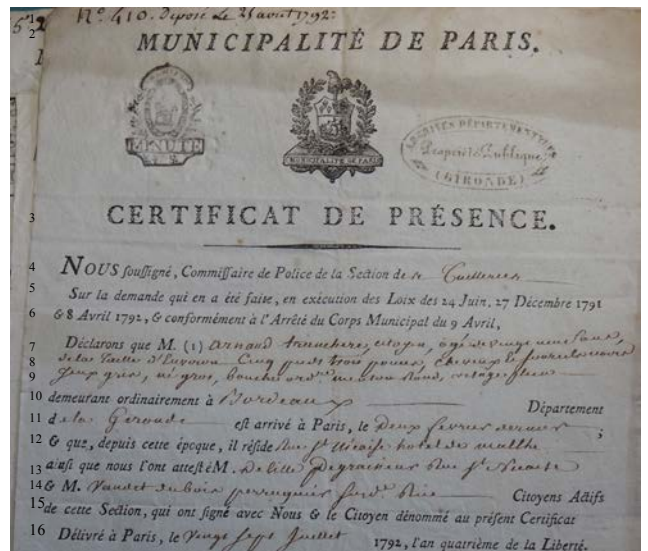 N.º 410. deposé Le 25 aout 1792:
MUNICIPALITÉ DE PARIS.
MINUTE
MUNICIPALITÉ DE PARIS
ARCHIVES DÉPARTEMENTALES
Propriété Publique
(GIRONDE)
CERTIFICAT DE PRÉSENCE.
NOUS soussigné, Commissaire de Police de la Section des Tuilleries
Sur la demande qui en a été faite, en exécution des Loix des 24 Juin, 27 Décembre 1791
& 8 Avril 1792, & conformément à l'Arrêté du Corps Municipal du 9 Avril,
Déclarons que M. (1) Arnaud citoyen, agé de vingt neuf ans,
de la Taille d'Environ Cinq pieds trois pouces, cheveux & sourcils noirs
yeux gris, né gros, bouche ord.re menton Rond, visage plein
demeurant ordinairement à Bordeaux Département
de la Gironde est arrivé à Paris, le Deux fevrier dernier ;
& que, depuis cette époque, il réside Rue St Nicaise hotel de malthe
ainsi que nous l'ont attesté M. Rue St Nicaise
& M. perruquier Citoyens Actifs
de cette Section, qui ont signé avec Nous & le Citoyen dénommé au présent Certificat
Délivré à Paris, le Vingt Sept Juillet 1792, l'an quatrième de la Liberté.